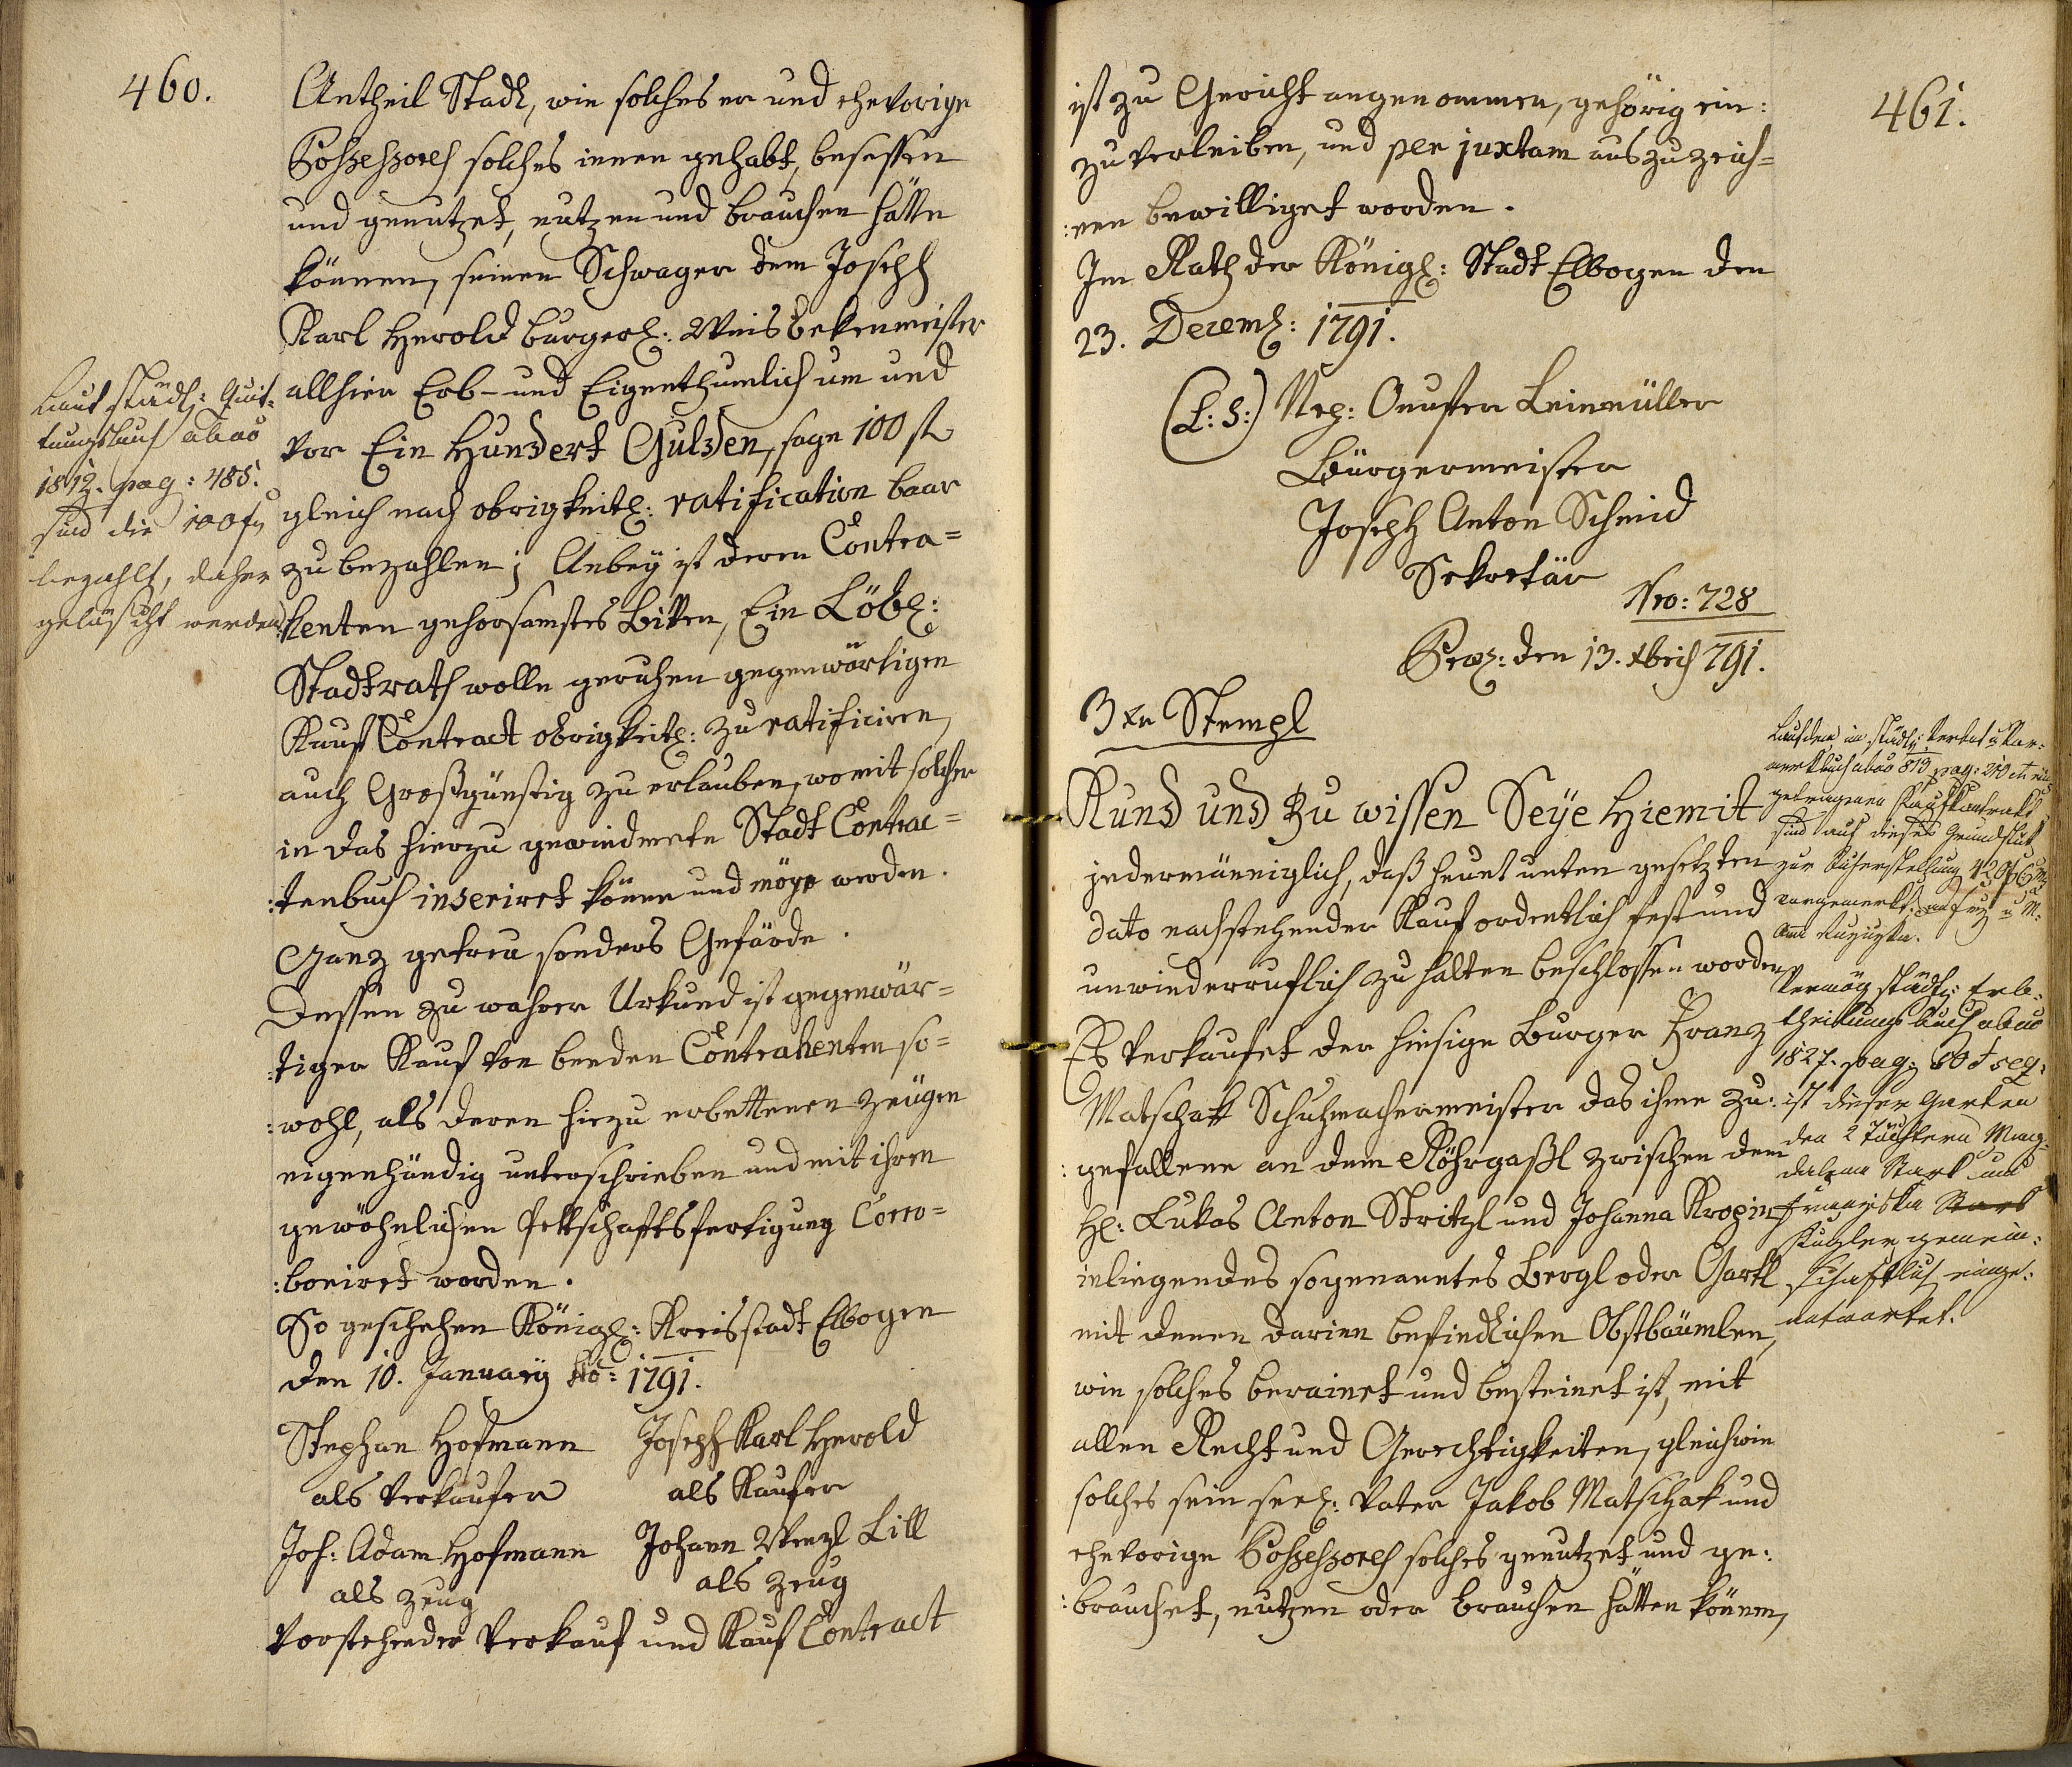 460.
Antheil Stadl, wie solches er und ehevorige
Possessores solches innen gehabt, besessen
und genutzet, nutzen und brauchen hätte
können, seinen Schwager dem Joseph
Karl Herold burgerl: Weisbekenmeister
allhier Erb- und Eigenthumlich um und
vor Ein Hundert Gulden, sage 100 fl
gleich nach obrigkeitl: ratification baar
zu bezahlen; Anbey ist deren Contra=
henten gehorsamstes Bitten, Ein Löbl:
Stadtrath wolle geruhen gegenwärtigen
Kauf Contract obrigkeitl: zu ratificiren,
auch Großgünstig zu erlauben, womit solcher
in das hierzu gewiedmete Stadt Contrac=
:tenbuch inseriret könne und möge werden.
Ganz getreu sonders Gefärde.
Dessen zu wahrer Urkund ist gegenwär=
:tiger Kauf von beeden Contrahenten so=
:wohl, als deren hiezu erbettenen Zeügen
eigenhändig unterschrieben und mit ihren
gewöhnlichen Pettschaftsfertigung Corro=
:boriret worden.
So geschehen Königl: Kreisstadt Elbogen
den 10. January Ao: 1791.
Stephan Hofmann Joseph Karl Herold
als Verkaufer als Kaufer
Joh: Adam Hofmann Johann Wenzl Lill
als Zeug als Zeug
Vorstehender Verkauf und Kauf Contract
Laut städt: Quit-
tungsbuch ab ao
1812. pag: 485.
sind die 100 f
bezahlt, daher
gelöscht werden.
461.
ist zu Gericht angenommen, gehörig ein:
zuverleiben, und per juxtam auszuzeich=
:nen bewilliget worden.
Im Rath der Königl: Stadt Elbogen den
23. Decemb: 1791.
(L: S:) Nep: Onufter Leinmüller
Bürgermeister
Joseph Anton Schmid
Sekretär
Nro: 728
Praes: den 13. Xbris 791.
3 xr Stempl
Kund und zu wissen Seye hiemit
jedermänniglich, daß heunt unten gesetzten
dato nachstehender Kauf ordentlich fest und
unwiederruflich zu halten beschlossen worden
Es verkaufet der hiesige Burger Franz
Matschak Schuhmachermeister das ihme zu:
:gefallene an dem Röhrgaßl zwischen dem
H: Lukas Anton Stritzl und Johanna Kropin
inliegendes sogenanntes Bergl oder Gartl
mit denen darinn befindlichen Obstbäumlen,
wie solches berainet und besteinet ist, mit
allen Recht und Gerechtigkeiten, gleichwie
solches sein seel: Vater Jakob Matschak und
ehevorige Possessores solches genutzet und ge:
:brauchet, nutzen oder brauchen hätten können,
Laut den im städt:
buch ab ao 819 pag: 210 et
getragenen Kaufkontrakt
sind auf dieses Grundstük
zur Sicherstellung
vorgemerkt.
Vermög städt: Erb-
theilungsbuch ab ao
1827. pag: 80 et seq:
ist dieser Garten
den 2 Töchtern Mag-
dalena Stark und
Franziska Stark
Kugler gemein:
schaftlich einge:
antwortet.